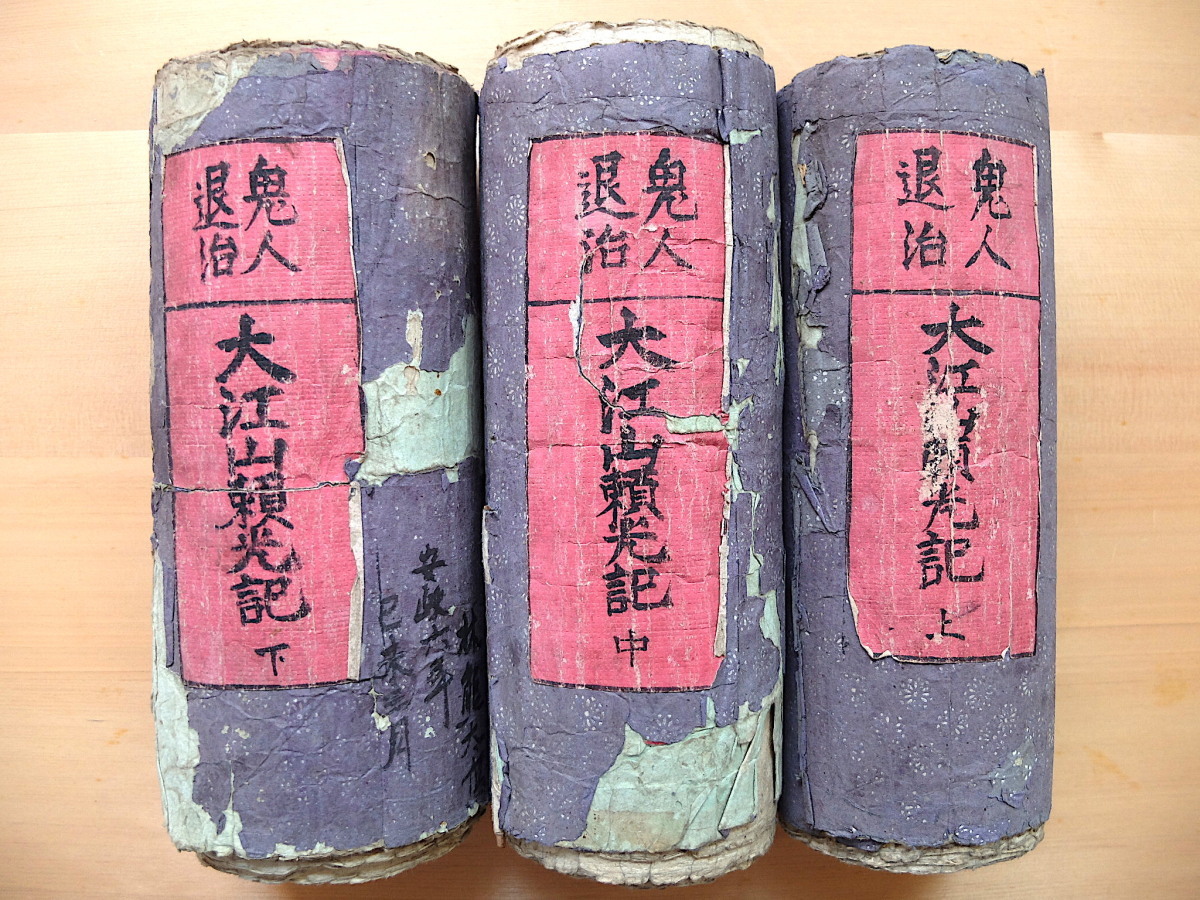 鬼人
退治
大江山頼光記
上
鬼人
退治
大江山頼光記
中
鬼人
退治
大江山頼光記
下
安政六年
己未
月